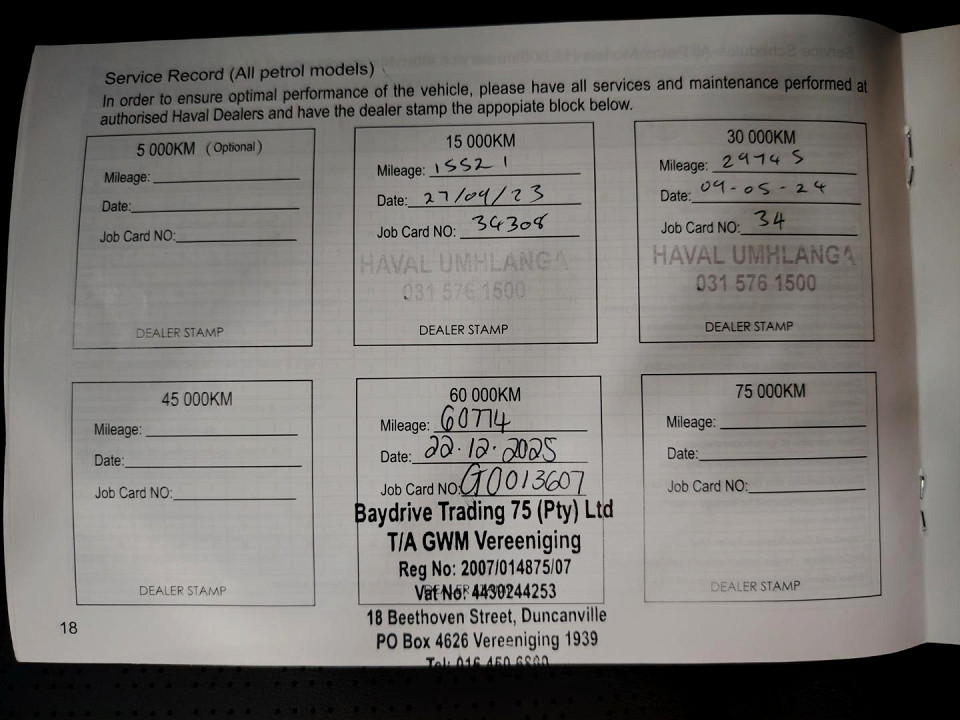 Service Record (All petrol models)
In order to ensure optimal performance of the vehicle, please have all services and maintenance performed at
authorised Haval Dealers and have the dealer stamp the appopiate block below.
5 000KM (Optional)
Mileage:
Date:
Job Card NO:
DEALER STAMP
15 000KM
Mileage: 15521
Date: 27/09/23
Job Card NO: 34308
HAVAL UMHLANGA
031 576 1500
DEALER STAMP
30 000KM
Mileage: 29745
Date: 09-05-24
Job Card NO: 34
HAVAL UMHLANGA
031 576 1500
DEALER STAMP
45 000KM
Mileage:
Date:
Job Card NO:
DEALER STAMP
60 000KM
Mileage: 60774
Date: 22.12.2025
Job Card NO: G0013607
Baydrive Trading 75 (Pty) Ltd
T/A GWM Vereeniging
Reg No: 2007/014875/07
Vat No: 4430244253
18 Beethoven Street, Duncanville
PO Box 4626 Vereeniging 1939
Tel: 016 450
75 000KM
Mileage:
Date:
Job Card NO:
DEALER STAMP
18